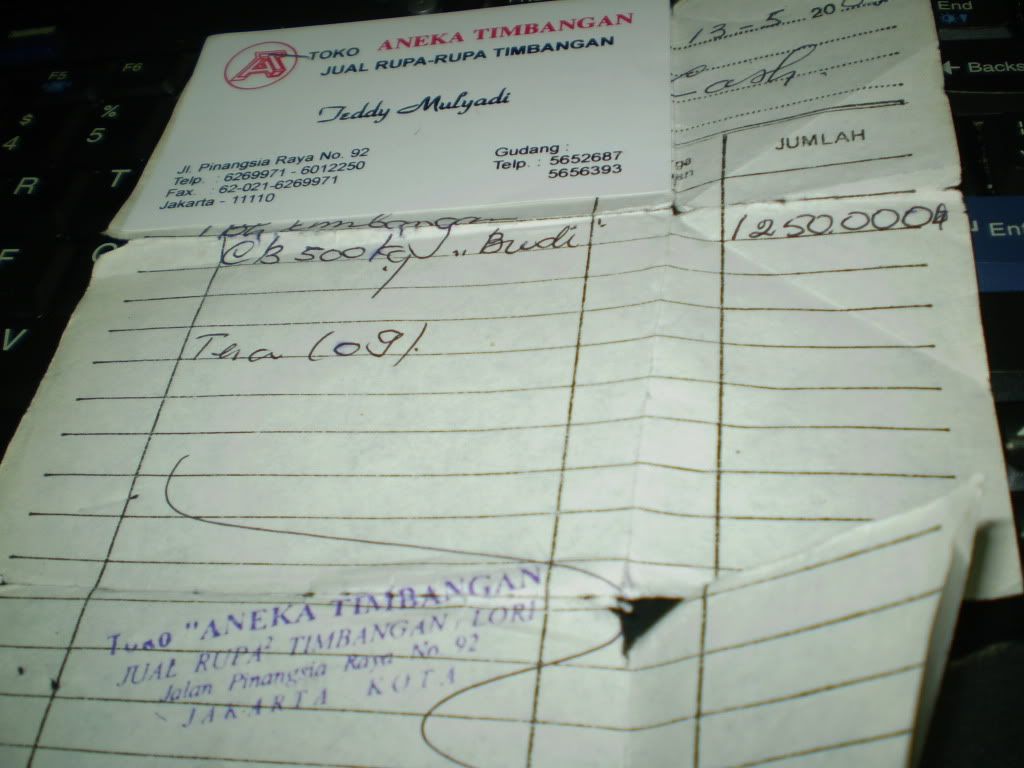 AJ TOKO ANEKA TIMBANGAN
JUAL RUPA-RUPA TIMBANGAN
Teddy Mulyadi
Jl. Pinangsia Raya No. 92
Telp. : 6269971 - 6012250
Fax. : 62-021-6269971
Jakarta - 11110
Gudang :
Telp. : 5652687
5656393
13-5 20
Cash
JUMLAH
timbangan
CB 500 kg "Budi"
1250.000
Tera (09).
Toko "ANEKA TIMBANGAN
JUAL RUPA² TIMBANGAN, LORI
Jalan Pinangsia Raya No. 92
JAKARTA KOTA
F5
F6
$
4
%
5
R
T
F
V
End
Backs
Ent